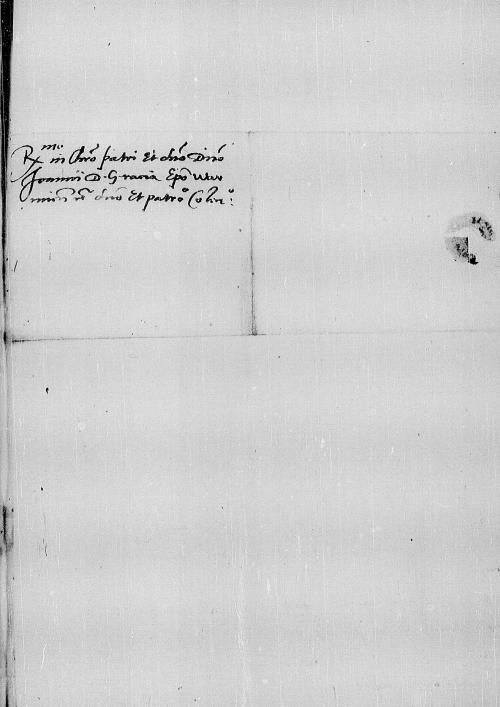 R.mo in Chro patri et dno Dno
Joanni D. Gracia Epo War
mien dno et patro Colen: